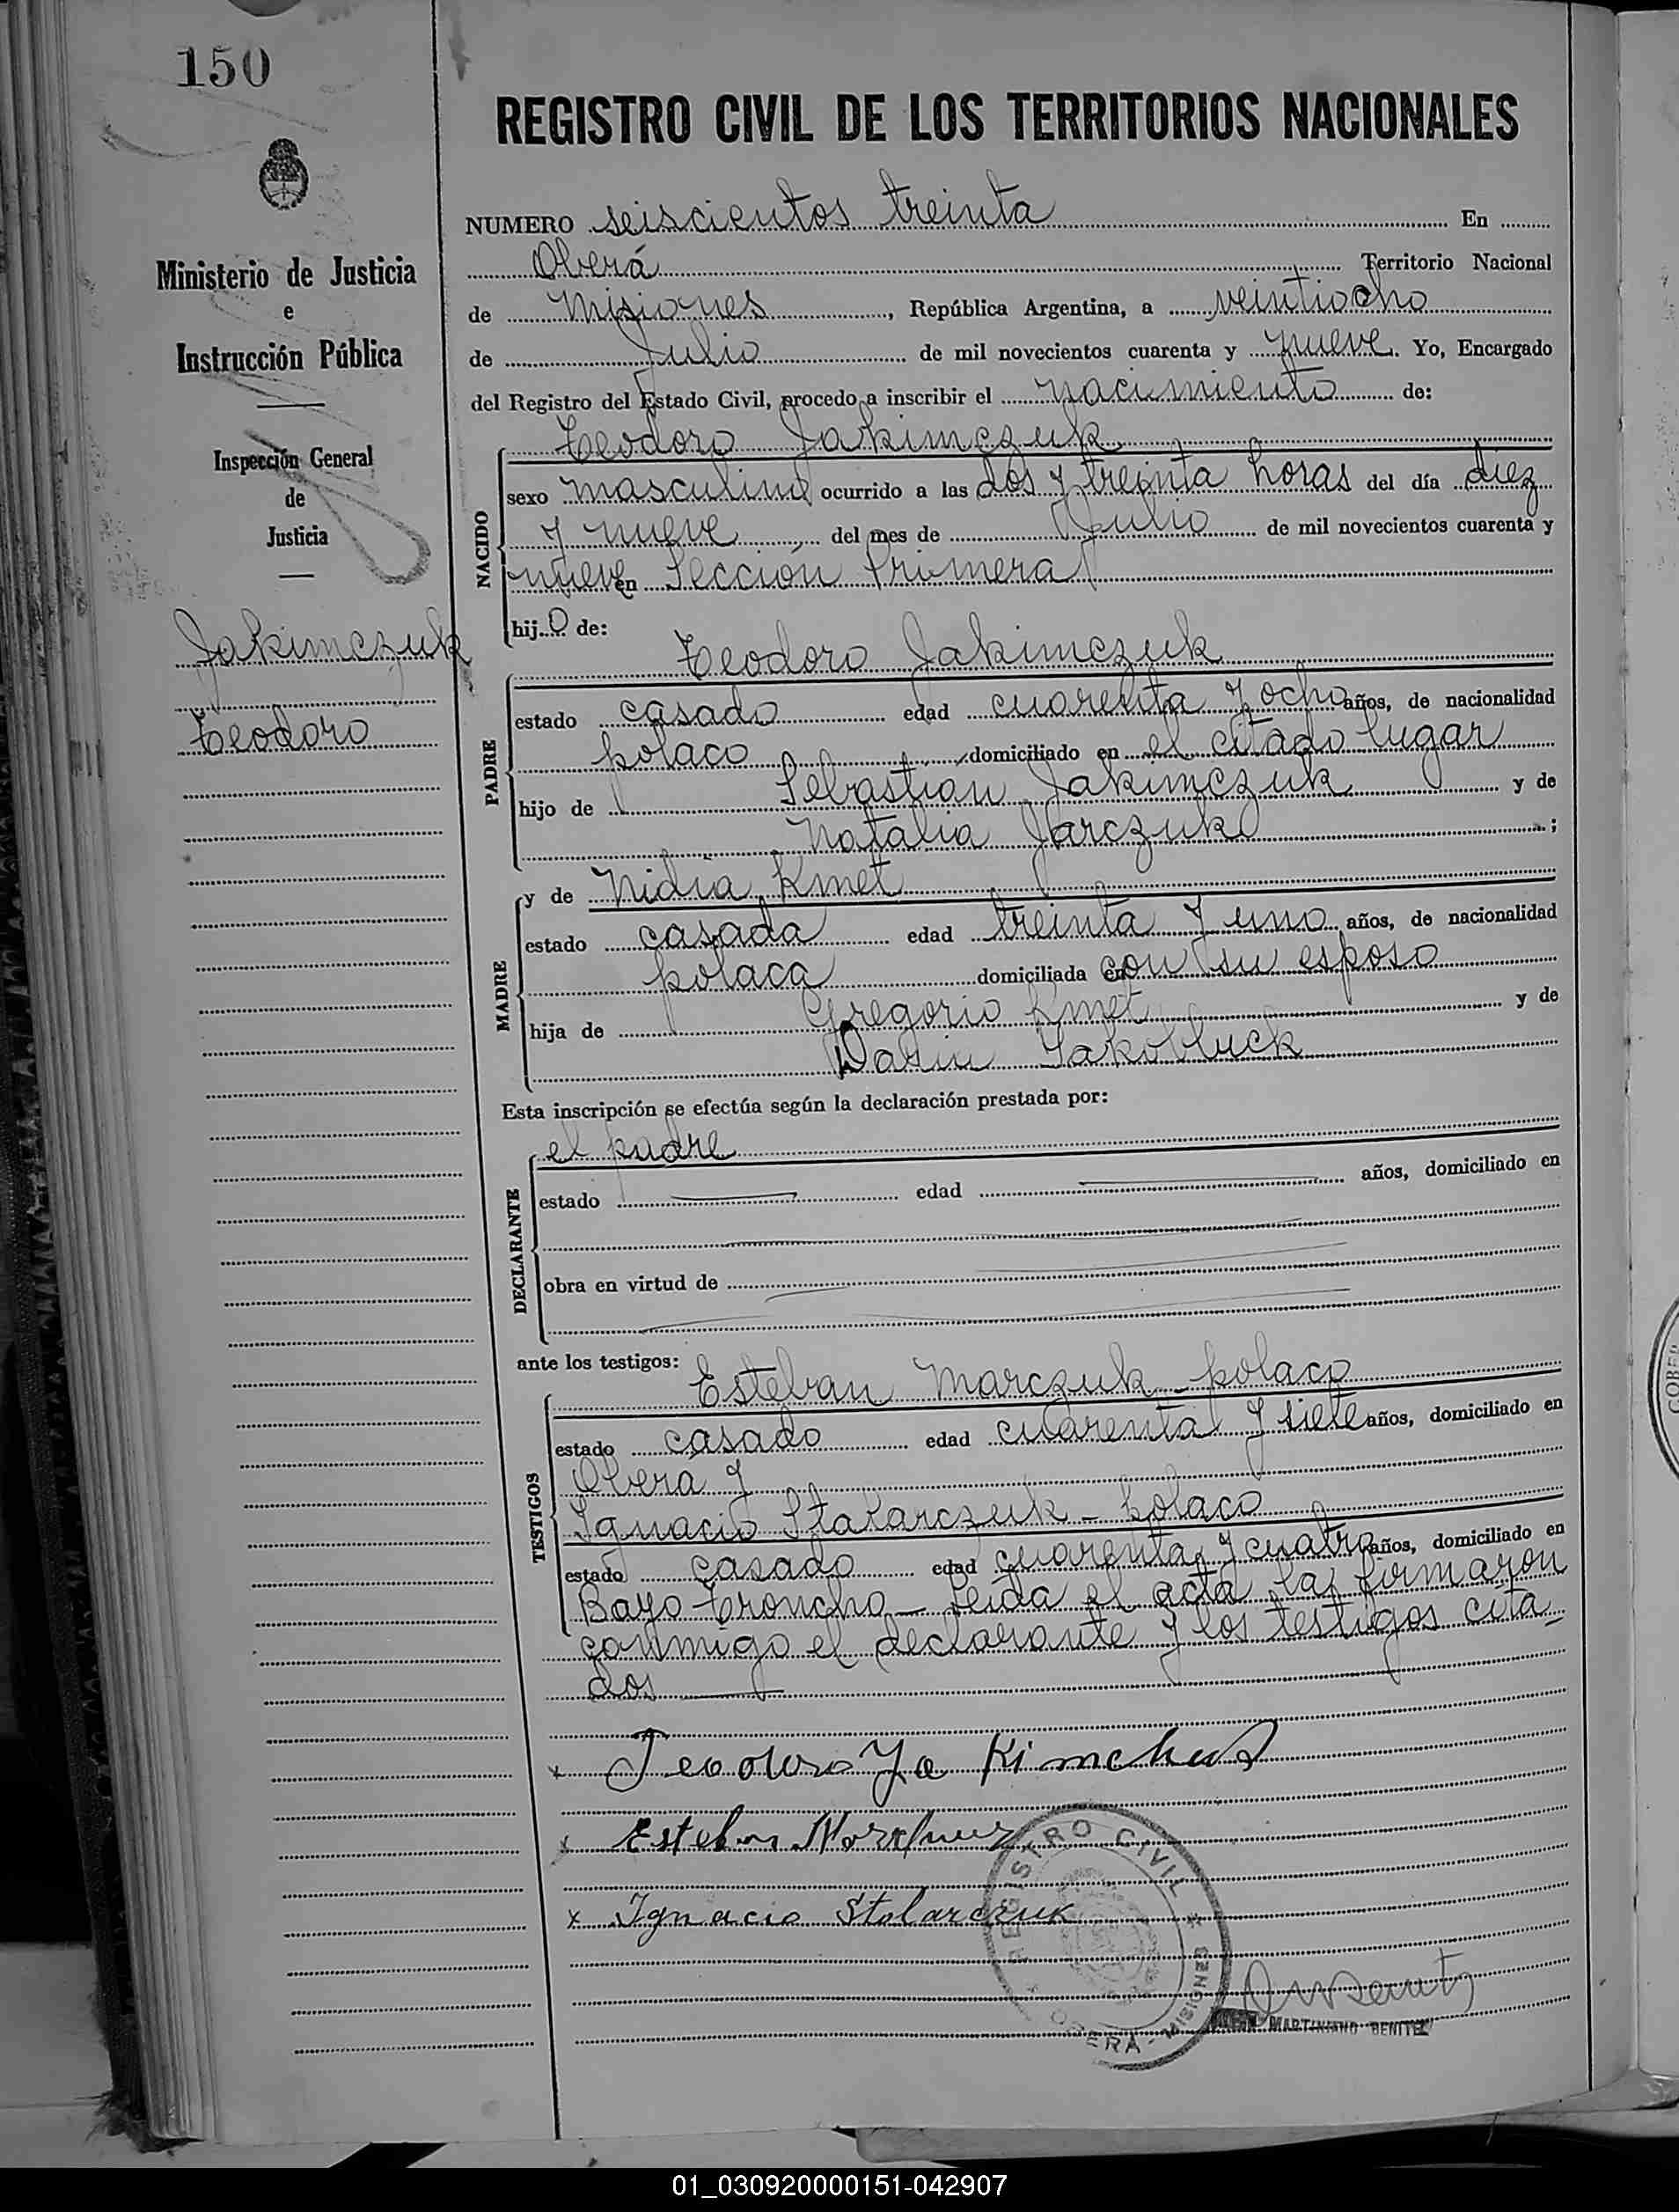 150
REGISTRO CIVIL DE LOS TERRITORIOS NACIONALES
Ministerio de Justicia
e
Instrucción Pública
Inspección General
de
Justicia
Jakimczuk
Teodoro
NUMERO seiscientos treinta En
Oberá Territorio Nacional
de Misiones, República Argentina, a veintiocho
de Julio de mil novecientos cuarenta y nueve. Yo, Encargado
del Registro del Estado Civil, procedo a inscribir el nacimiento de:
Teodoro Jakimczuk
NACIDO
sexo masculino ocurrido a las dos y treinta horas del día diez
y nueve del mes de Julio de mil novecientos cuarenta y
nueve en Sección Primera
hijo de:
Teodoro Jakimczuk
PADRE
estado casado edad cuarenta y ocho años, de nacionalidad
polaco domiciliado en el citado lugar
hijo de Sebastián Jakimczuk y de
Natalia Jarczuk;
y de Nidia Kmet
MADRE
estado casada edad treinta y uno años, de nacionalidad
polaca domiciliada en con su esposo
hija de Gregorio Kmet y de
Esta inscripción se efectúa según la declaración prestada por:
el padre
DECLARANTE
estado edad años, domiciliado en
obra en virtud de
ante los testigos:
Esteban Marczuk - polaco
TESTIGOS
estado casado edad cuarenta y siete años, domiciliado en
Oberá y
Ignacio Stalarczuk - polaco
estado casado edad cuarenta y cuatro años, domiciliado en
Bayo Troncho - Leída el acta la firmaron
conmigo el declarante y los testigos cita-
dos
x Teodoro Ja Kimchuk
x Esteban
x Ignacio Stolarczuk
REGISTRO CIVIL
OBERA - MISIONES
MARTINIANO BENITEZ
01_030920000151-042907